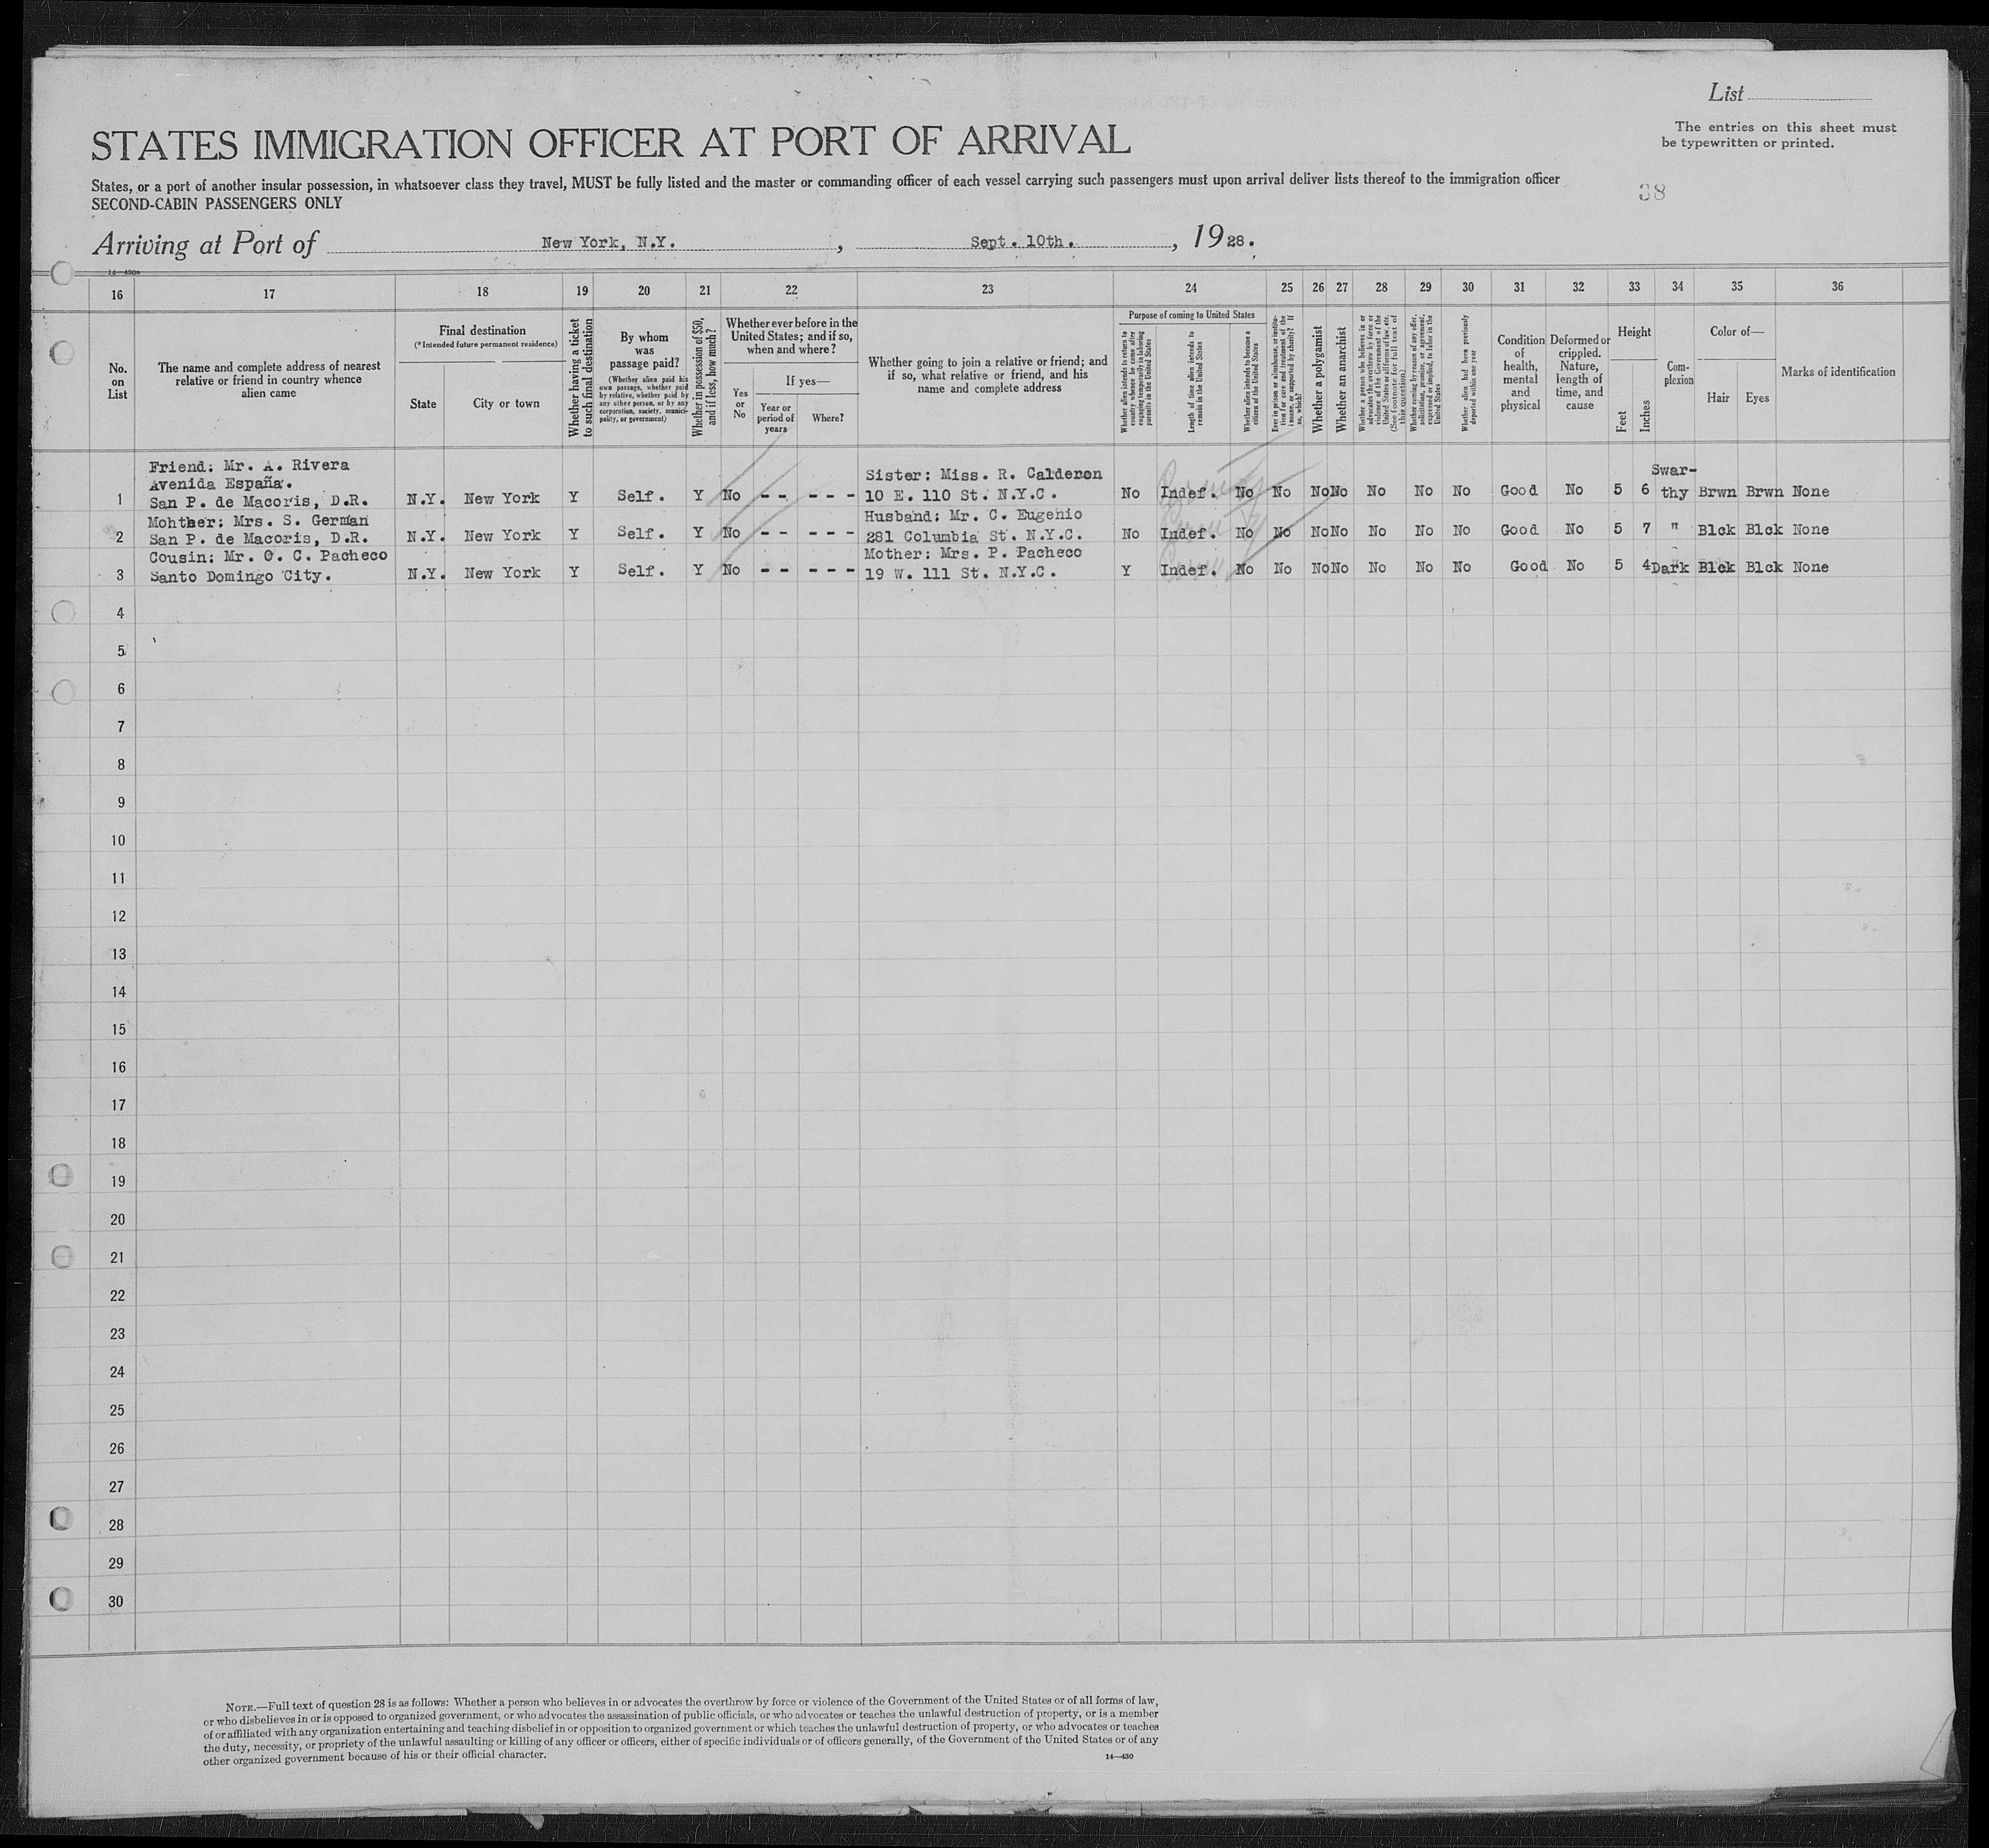 List
The entries on this sheet must
be typewritten or printed.
STATES IMMIGRATION OFFICER AT PORT OF ARRIVAL
States, or a port of another insular possession, in whatsoever class they travel, MUST be fully listed and the master or commanding officer of each vessel carrying such passengers must upon arrival deliver lists thereof to the immigration officer
SECOND-CABIN PASSENGERS ONLY
38
Arriving at Port of New York, N.Y. , Sept. 10th. , 1928.
14—430a
16 17 18 19 20 21 22 23 24 25 26 27 28 29 30 31 32 33 34 35 36
No.
on
List
The name and complete address of nearest
relative or friend in country whence
alien came
Final destination
(*Intended future permanent residence)
State
City or town
Whether having a ticket
to such final destination
By whom
was
passage paid?
(Whether alien paid his
own passage, whether paid
by relative, whether paid by
any other person, or by any
corporation, society, munici-
pality, or government)
Whether in possession of $50,
and if less, how much?
Whether ever before in the
United States; and if so,
when and where?
Yes
or
No
If yes—
Year or
period of
years
Where?
Whether going to join a relative or friend; and
if so, what relative or friend, and his
name and complete address
Purpose of coming to United States
Whether alien intends to return to
country whence he came after
engaging temporarily in laboring
pursuits in the United States
Length of time alien intends to
remain in the United States
Whether alien intends to become a
citizen of the United States
Ever in prison or almshouse, or institu-
tion for care and treatment of the
insane, or supported by charity? If
so, which?
Whether a polygamist
Whether an anarchist
Whether a person who believes in or
advocates the overthrow by force or
violence of the Government of the
United States or all forms of law, etc.
(See footnote for full text of
this question)
Whether coming by reason of any offer,
solicitation, promise, or agreement,
expressed or implied, to labor in the
United States
Whether alien had been previously
deported within one year
Condition
of
health,
mental
and
physical
Deformed or
crippled.
Nature,
length of
time, and
cause
Height
Feet
Inches
Com-
plexion
Color of—
Hair
Eyes
Marks of identification
Friend: Mr. A. Rivera
Avenida España. Sister: Miss. R. Calderon Swar-
1 San P. de Macoris, D.R. N.Y. New York Y Self. Y No - - - - - 10 E. 110 St. N.Y.C. No Indef. No No No No No No No Good No 5 6 thy Brwn Brwn None
Mohther: Mrs. S. German Husband: Mr. C. Eugenio
2 San P. de Macoris, D.R. N.Y. New York Y Self. Y No - - - - - 281 Columbia St. N.Y.C. No Indef. No No No No No No No Good No 5 7 " Blck Blck None
Cousin: Mr. G. C. Pacheco Mother: Mrs. P. Pacheco
3 Santo Domingo City. N.Y. New York Y Self. Y No - - - - - 19 W. 111 St. N.Y.C. Y Indef. No No No No No No No Good No 5 4 Dark Blck Blck None
4
5
6
7
8
9
10
11
12
13
14
15
16
17
18
19
20
21
22
23
24
25
26
27
28
29
30
NOTE.—Full text of question 28 is as follows: Whether a person who believes in or advocates the overthrow by force or violence of the Government of the United States or of all forms of law,
or who disbelieves in or is opposed to organized government, or who advocates the assassination of public officials, or who advocates or teaches the unlawful destruction of property, or is a member
of or affiliated with any organization entertaining and teaching disbelief in or opposition to organized government or which teaches the unlawful destruction of property, or who advocates or teaches
the duty, necessity, or propriety of the unlawful assaulting or killing of any officer or officers, either of specific individuals or of officers generally, of the Government of the United States or of any
other organized government because of his or their official character.
14—430